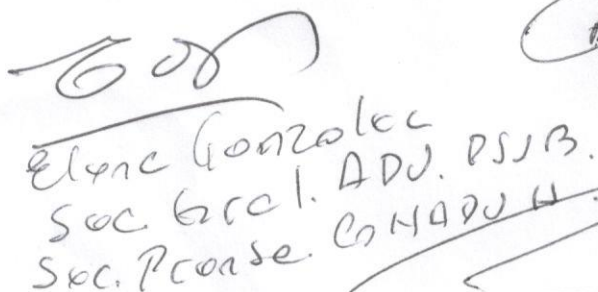 Elena Gonzalez
Sec. Gral. ADU. PSJB.
Sec. Prense. CONADU H.